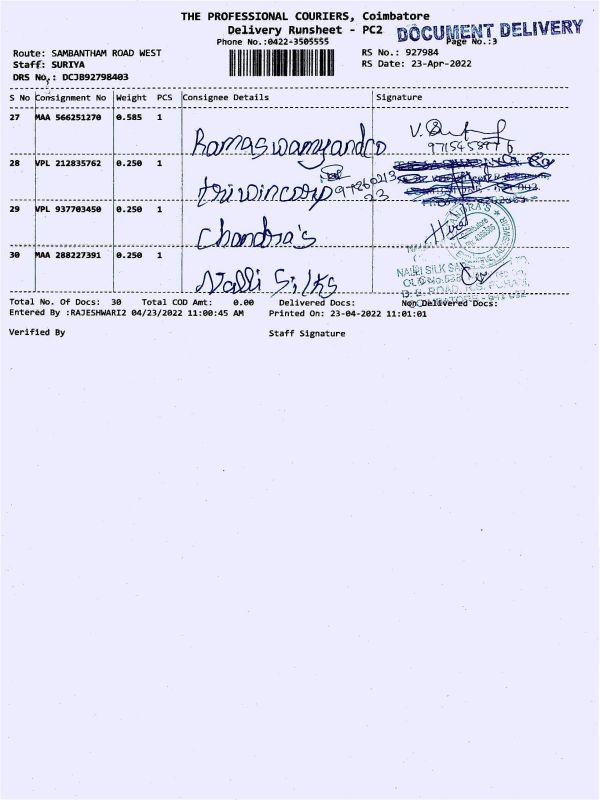 THE PROFESSIONAL COURIERS, Coimbatore
Delivery Runsheet - PC2
DOCUMENT DELIVERY
Phone No.:0422-3505555
Page No.:3
Route: SAMBANTHAM ROAD WEST
RS No.: 927984
Staff: SURIYA
RS Date: 23-Apr-2022
DRS No.: DCJB92798403
S No Consignment No Weight PCS Consignee Details Signature
27 MAA 566251270 0.585 1
Ramaswamyandco
28 VPL 212835762 0.250 1
triwincorp
29 VPL 937703450 0.250 1
Chandra's
30 MAA 288227391 0.250 1
Nalli Silks
NALLI SILK
Total No. Of Docs: 30 Total COD Amt: 0.00 Delivered Docs: Non Delivered Docs:
Entered By :RAJESHWARI2 04/23/2022 11:00:45 AM Printed On: 23-04-2022 11:01:01
Verified By Staff Signature